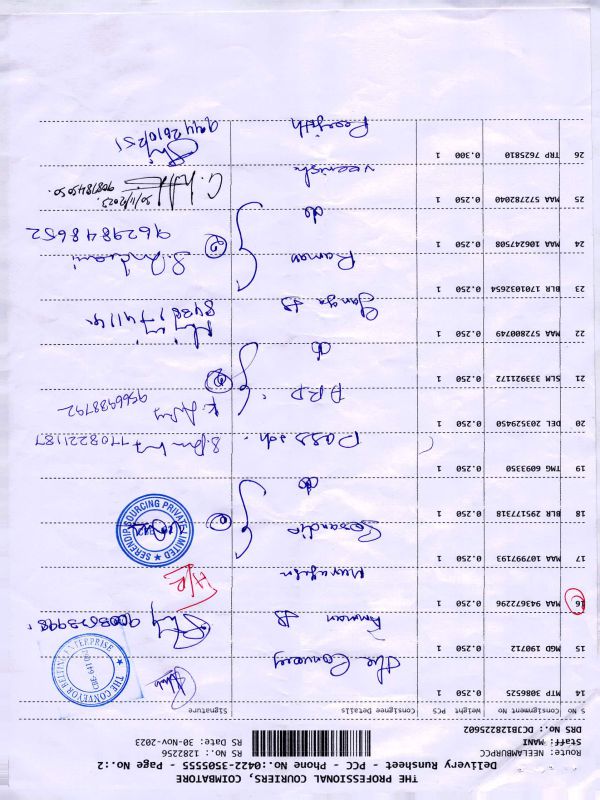 THE PROFESSIONAL COURIERS, COIMBATORE
Delivery Runsheet - PCC - Phone No:: 0422-3505555 - Page No.:2
Route: NEELAMBURPCC RS No.: 1282256
Staff: MANI RS Date: 30-Nov-2023
DRS No.: DC3B128225602
S No Consignment No Weight PCS Consignee Details Signature
14 MTP 3086525 0.250 1 The Conveory
THE CONVEYOR BELTING ENTERPRISE
15 MGD 190712 0.250 1 Amman
16 MAA 943672296 0.250 1 Murugesh H/R
17 MAA 107997193 0.250 1
SERENDIP SOURCING PRIVATE LIMITED
18 BLR 295177318 0.250 1 do
19 TMG 6093350 0.250 1 Dass sdh. 7708221187
20 DEL 203529450 0.250 1 A.R.D. 9566988792
21 SLM 333921172 0.250 1 do 2
22 MAA 572800749 0.250 1 Ganga
23 BLR 1701032654 0.250 1 Raman
24 MAA 106247508 0.250 1 do 2 9629848652
25 MAA 572782040 0.250 1 30/11/2023
26 TRP 7625810 0.300 1 Renjith